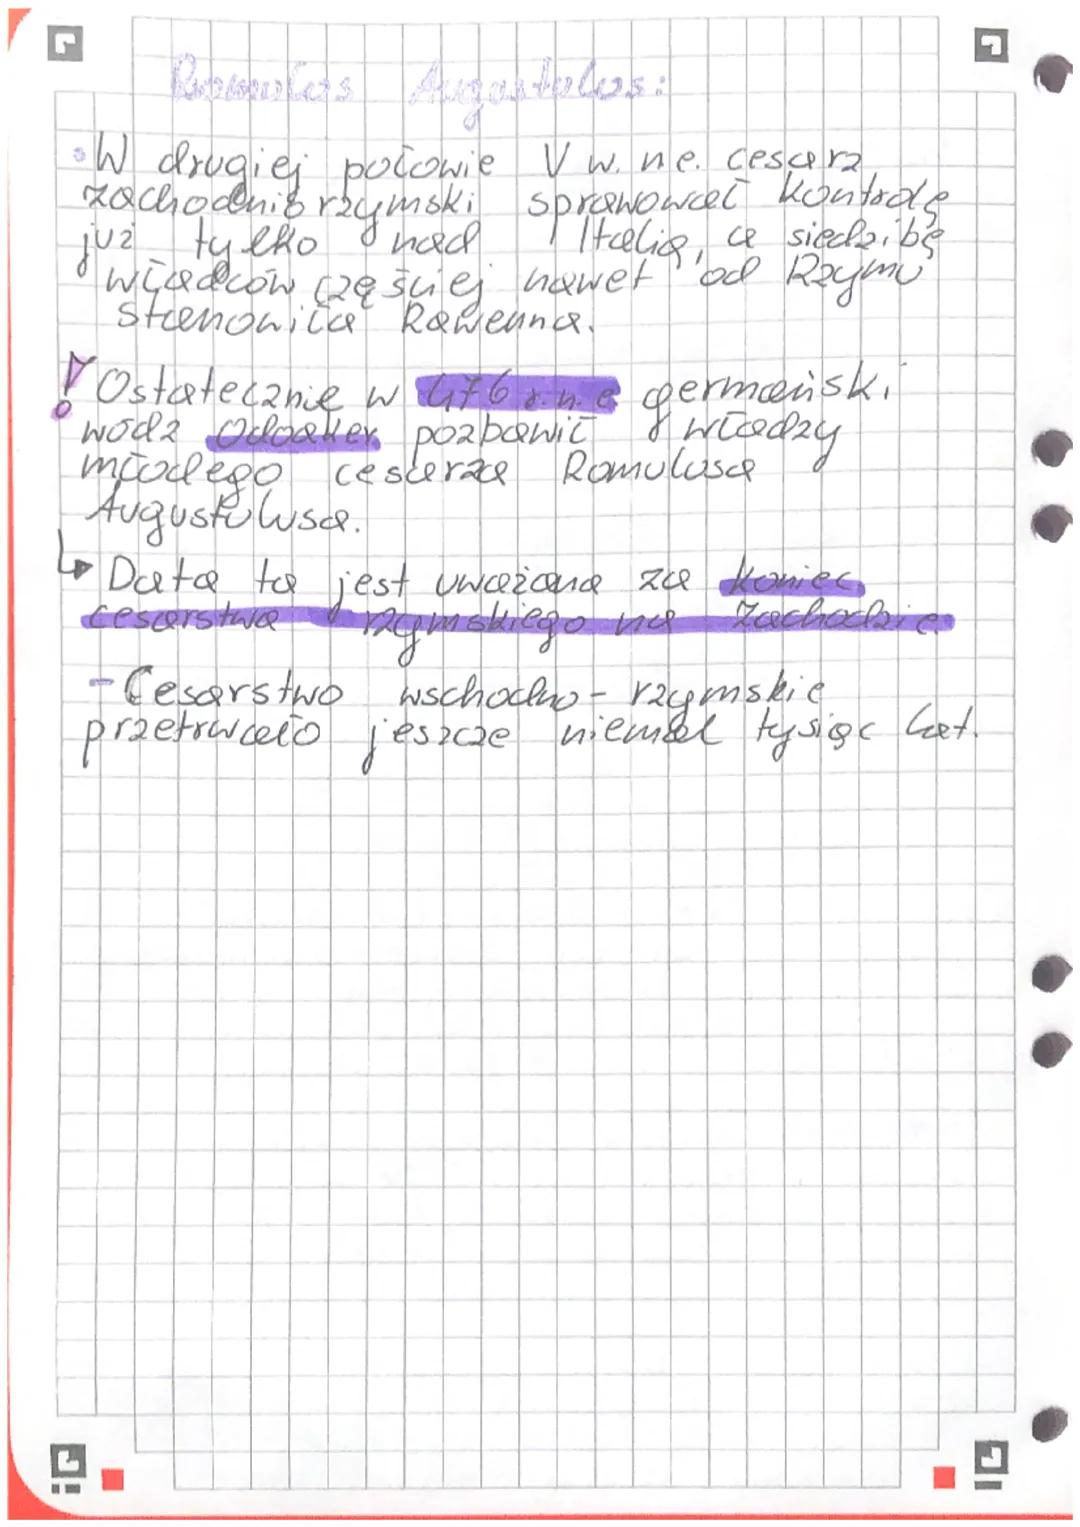 Romulus Augustulus:
• W drugiej połowie V w. n.e. cesarz
zachodniorzymski sprawował kontrolę
już tylko nad Italią, a siedzibę
władców częściej nawet od Rzymu
stanowiła Rawenna.
! Ostatecznie w 476 r.n.e germański
wódz Odoaker pozbawił władzy
młodego cesarza Romulusa
Augustulusa.
↳ Data ta jest uważana za koniec
cesarstwa rzymskiego na zachodzie.
- Cesarstwo wschodno-rzymskie
przetrwało jeszcze niemal tysiąc lat.